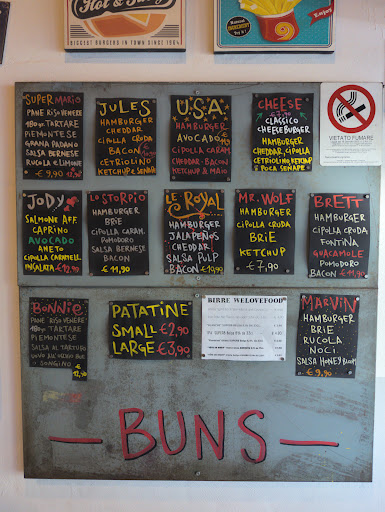 Hot & Juicy
BIGGEST BURGERS IN TOWN SINCE 1964
Enjoy
SUPER MARIO
PANE RISO VENERE
180gr. TARTARE
PIEMONTESE
GRANA PADANO
SALSA BERNESE
RUCOLA E LIMONE
€ 9,90
JULES
HAMBURGER
CHEDDAR
CIPOLLA CRUDA
BACON
CETRIOLINO
KETCHUP & SENAPE
U.S.A
HAMBURGER
AVOCADO
CIPOLLA CARAM.
CHEDDAR - BACON
KETCHUP & MAIO
CHEESE
€7,90
CLASSICO
CHEESEBURGER
HAMBURGER
CHEDDAR, CIPOLLA
CETRIOLINO KETCHUP
E POCA SENAPE
VIETATO FUMARE
JODY
SALMONE AFF.
CAPRINO
AVOCADO
ANETO
CIPOLLA CARAMELL.
INSALATA €12,90
LO STORPIO
HAMBURGER
BRIE
CIPOLLA CARAM.
POMODORO
SALSA BERNESE
BACON
€ 11,90
LE ROYAL
HAMBURGER
JALAPEÑOS
CHEDDAR
SALSA PULP
BACON
MR. WOLF
HAMBURGER
CIPOLLA CRUDA
BRIE
KETCHUP
€7,90
BRETT
HAMBURGER
CIPOLLA CRUDA
FONTINA
GUACAMOLE
POMODORO
BACON €11,90
BONNIE
PANE RISO VENERE
180gr TARTARE
PIEMONTESE
SALSA AL TARTUFO
SONGINO
€ 12,90
PATATINE
SMALL €2,90
LARGE €3,90
BIRRE WELOVEFOOD
MARVIN
HAMBURGER
BRIE
RUCOLA
NOCI
SALSA HONEY BOURBON
€ 9,90
BUNS